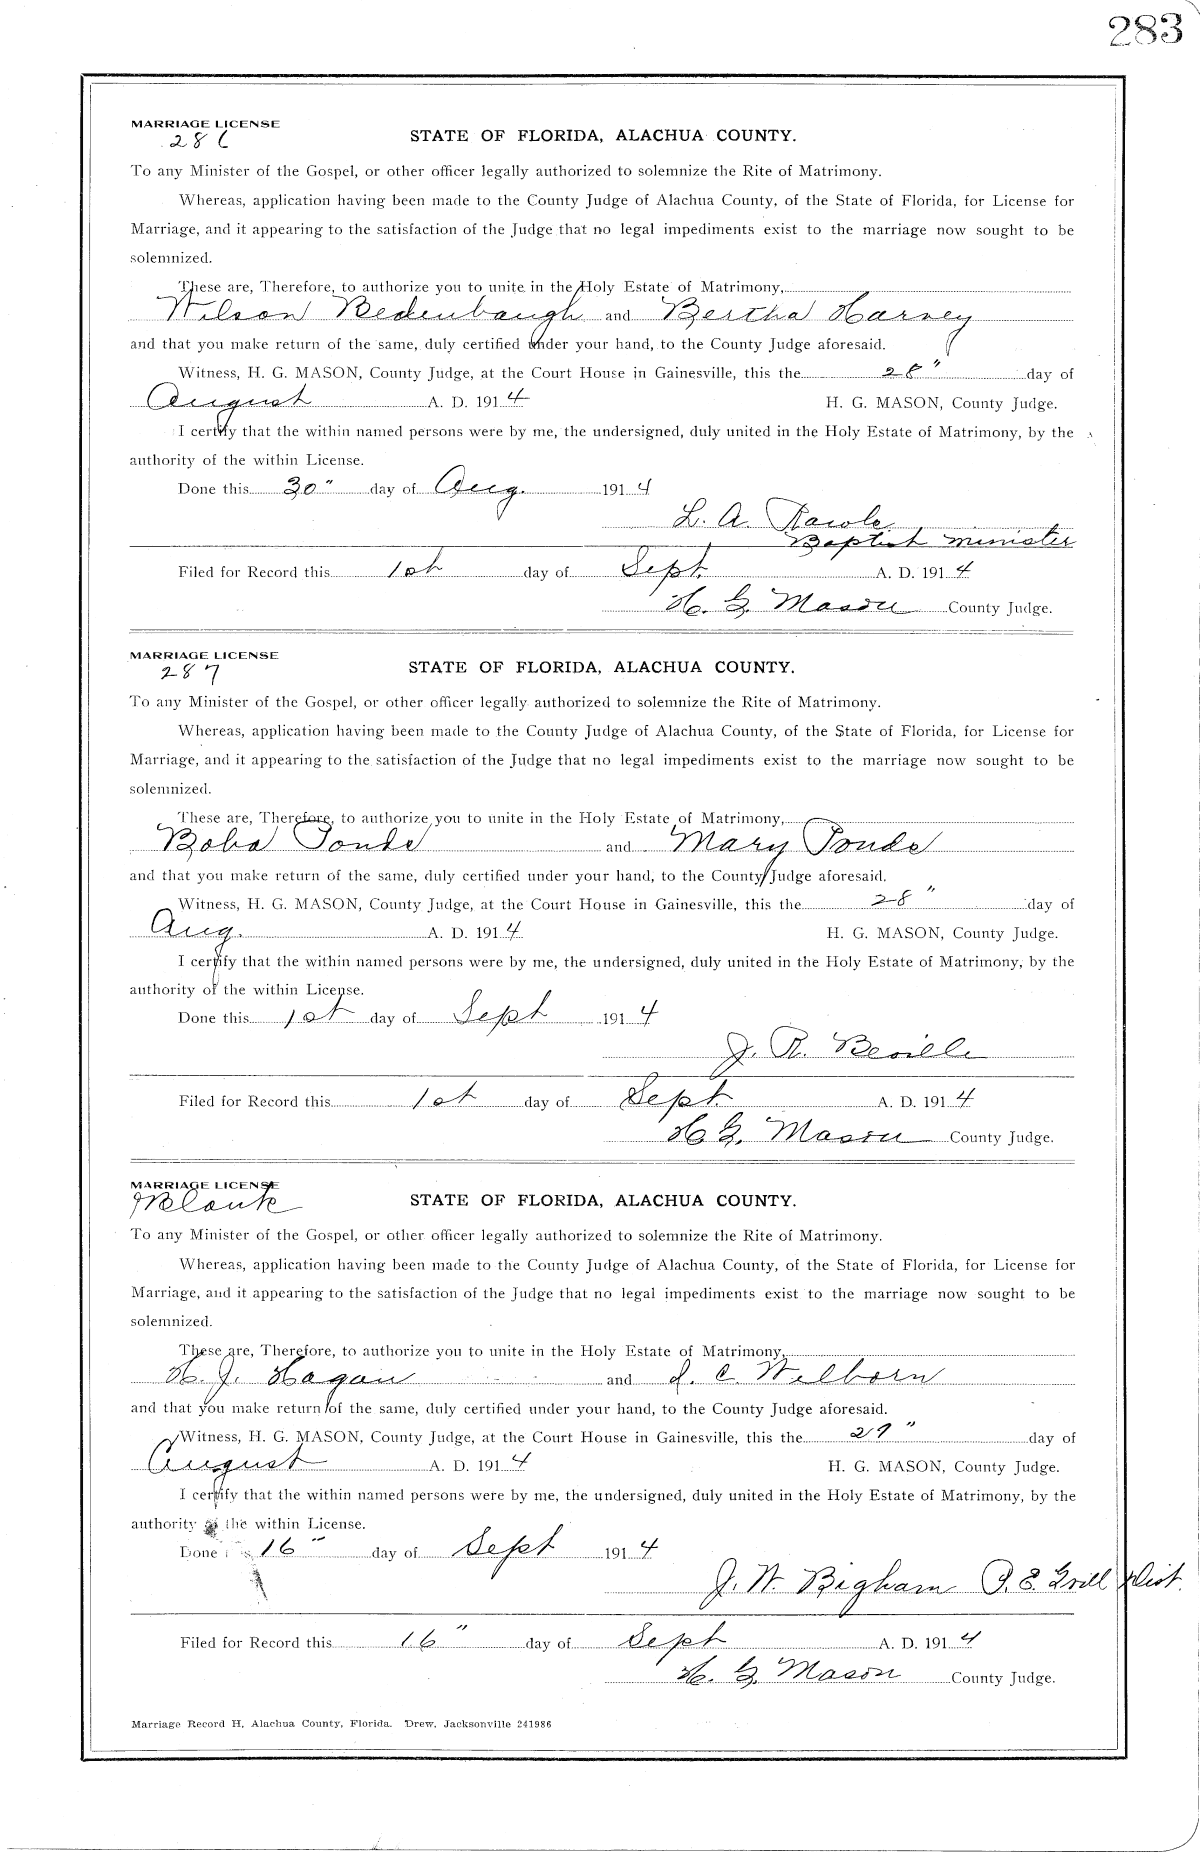 283
MARRIAGE LICENSE
286
STATE OF FLORIDA, ALACHUA COUNTY.
To any Minister of the Gospel, or other officer legally authorized to solemnize the Rite of Matrimony.
Whereas, application having been made to the County Judge of Alachua County, of the State of Florida, for License for
Marriage, and it appearing to the satisfaction of the Judge that no legal impediments exist to the marriage now sought to be
solemnized.
These are, Therefore, to authorize you to unite in the Holy Estate of Matrimony,
Wilson Bedenbaugh and Bertha Harvey
and that you make return of the same, duly certified under your hand, to the County Judge aforesaid.
Witness, H. G. MASON, County Judge, at the Court House in Gainesville, this the 28" day of
August A. D. 1914 H. G. MASON, County Judge.
I certify that the within named persons were by me, the undersigned, duly united in the Holy Estate of Matrimony, by the
authority of the within License.
Done this 30" day of Aug. 1914
L. A.
Baptist minister
Filed for Record this 1st day of Sept. A. D. 1914
H. G. Mason County Judge.
MARRIAGE LICENSE
287
STATE OF FLORIDA, ALACHUA COUNTY.
To any Minister of the Gospel, or other officer legally authorized to solemnize the Rite of Matrimony.
Whereas, application having been made to the County Judge of Alachua County, of the State of Florida, for License for
Marriage, and it appearing to the satisfaction of the Judge that no legal impediments exist to the marriage now sought to be
solemnized.
These are, Therefore, to authorize you to unite in the Holy Estate of Matrimony,
Ponds and Mary Ponds
and that you make return of the same, duly certified under your hand, to the County Judge aforesaid.
Witness, H. G. MASON, County Judge, at the Court House in Gainesville, this the 28" day of
Aug. A. D. 1914 H. G. MASON, County Judge.
I certify that the within named persons were by me, the undersigned, duly united in the Holy Estate of Matrimony, by the
authority of the within License.
Done this 1st day of Sept 1914
J. R. Beville
Filed for Record this 1st day of Sept. A. D. 1914
H. G. Mason County Judge.
MARRIAGE LICENSE
Blank
STATE OF FLORIDA, ALACHUA COUNTY.
To any Minister of the Gospel, or other officer legally authorized to solemnize the Rite of Matrimony.
Whereas, application having been made to the County Judge of Alachua County, of the State of Florida, for License for
Marriage, and it appearing to the satisfaction of the Judge that no legal impediments exist to the marriage now sought to be
solemnized.
These are, Therefore, to authorize you to unite in the Holy Estate of Matrimony,
H. J. Hagan and I. C. Welborn
and that you make return of the same, duly certified under your hand, to the County Judge aforesaid.
Witness, H. G. MASON, County Judge, at the Court House in Gainesville, this the 29" day of
August A. D. 1914 H. G. MASON, County Judge.
I certify that the within named persons were by me, the undersigned, duly united in the Holy Estate of Matrimony, by the
authority of the within License.
Done this 16" day of Sept 1914
J. W. Bigham P. E. Gvill Dist.
Filed for Record this 16" day of Sept A. D. 1914
H. G. Mason County Judge.
Marriage Record H, Alachua County, Florida. Drew, Jacksonville 241986